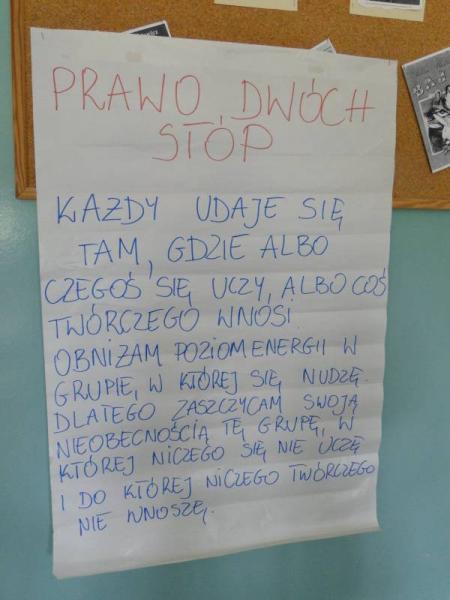 PRAWO DWÓCH
STÓP
KAŻDY UDAJE SIĘ
TAM, GDZIE ALBO
CZEGOŚ SIĘ UCZY, ALBO COŚ
TWÓRCZEGO WNOSI.
OBNIŻAM POZIOM ENERGII W
GRUPIE, W KTÓREJ SIĘ NUDZĘ.
DLATEGO ZASZCZYCAM SWOJĄ
NIEOBECNOŚCIĄ TĘ GRUPĘ, W
KTÓREJ NICZEGO SIĘ NIE UCZĘ
I DO KTÓREJ NICZEGO TWÓRCZEGO
NIE WNOSZĘ.